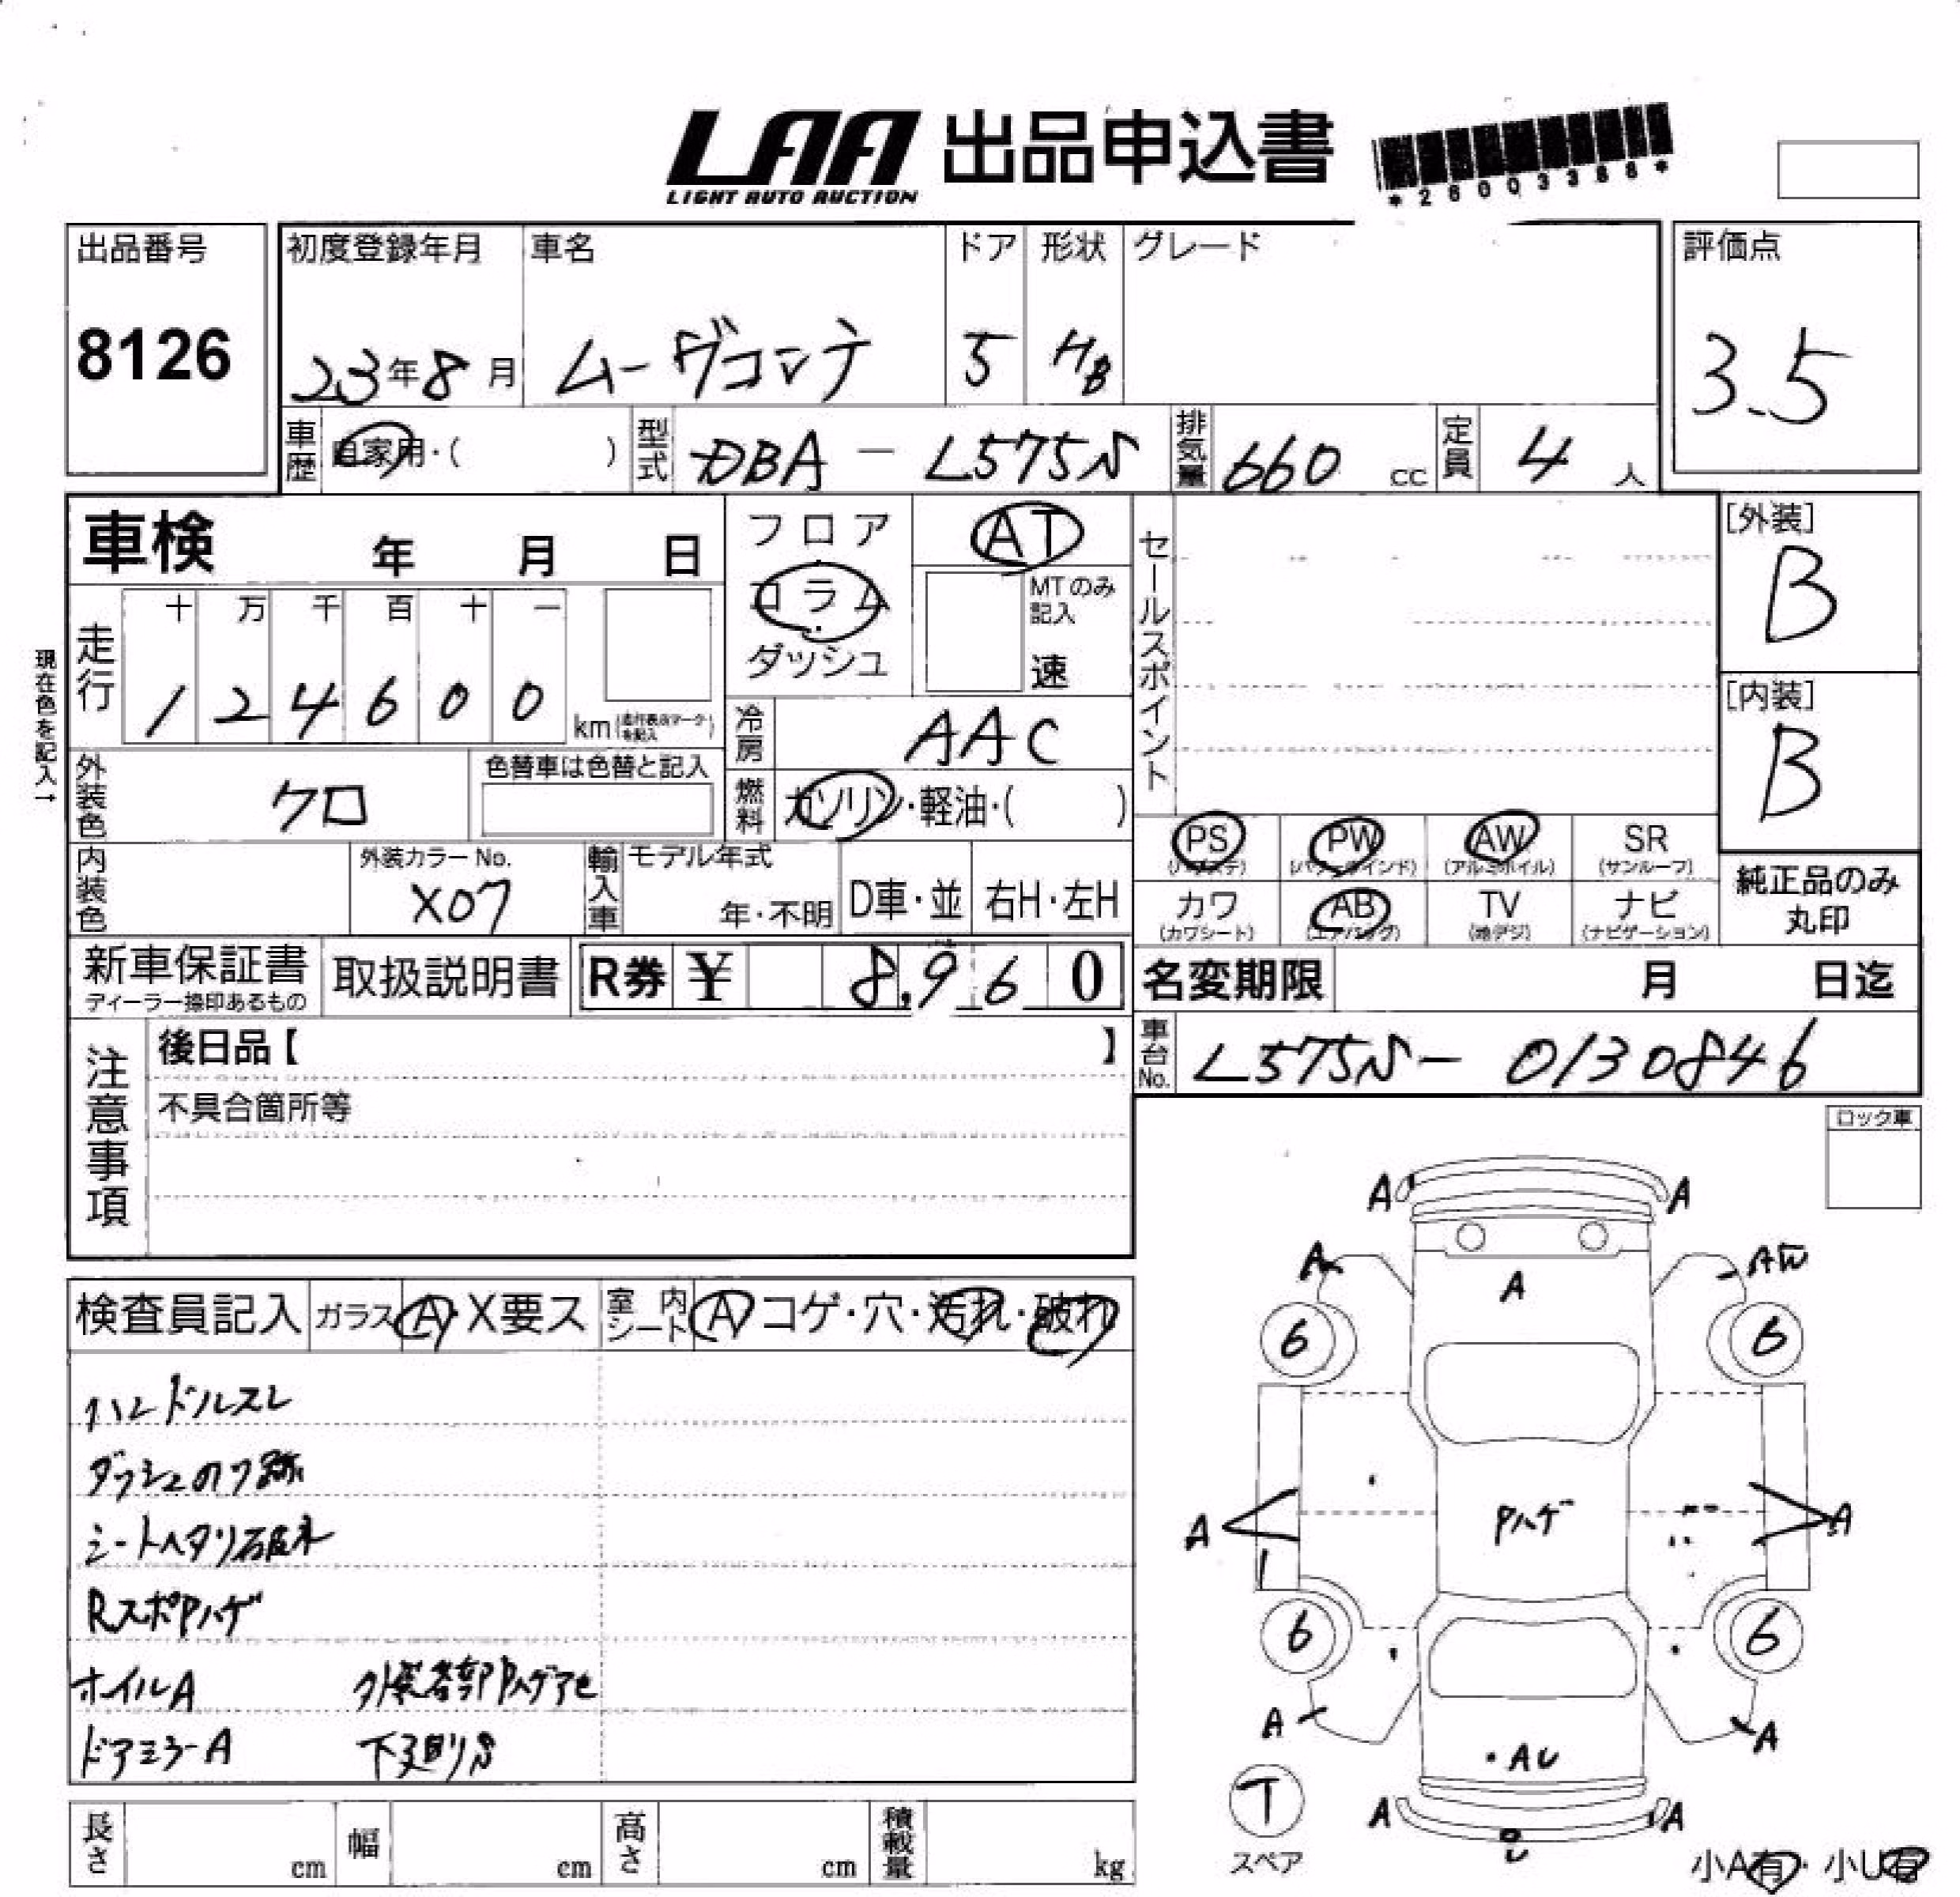 LAA 出品申込書
LIGHT AUTO AUCTION
*26003388*
出品番号 8126
初度登録年月 23年8月
車名 ムーヴコンテ
ドア 5
形状 HB
グレード
評価点 3.5
車歴 自家用・( )
型式 DBA - L575S
排気量 660 cc
定員 4 人
車検 年 月 日
フロア
コラム
ダッシュ
AT
MTのみ記入
速
セールスポイント
[外装] B
[内装] B
現在色を記入→
走行 十 万 千 百 十 一
1 2 4 6 0 0 km
冷房 AAC
外装色 クロ
色替車は色替と記入
燃料 ガソリン・軽油・( )
PS (パワステ)
PW (パワーウインド)
AW (アルミホイル)
SR (サンルーフ)
カワ (カワシート)
AB (エアバック)
TV (地デジ)
ナビ (ナビゲーション)
純正品のみ丸印
内装色
外装カラーNo. X07
輸入車 モデル年式 年・不明
D車・並
右H・左H
新車保証書
ディーラー捺印あるもの
取扱説明書
R券 ¥ 8,960
名変期限 月 日迄
車台No. L575S- 0130846
注意事項
後日品【 】
不具合箇所等
ロック車
検査員記入 ガラス A・X要ス 室内シート A コゲ・穴・汚れ・破れ
ハンドルスレ
ダッシュのリ跡
シートヘタリ破れ
RスポPハゲ
ホイルA 外装各部Pハゲアセ
ドアミラーA 下廻りS
A A
A AW
A
6 6
Pハゲ
A A
6 6
A A
・AU
T
スペア
A A
U
小A有・小U有
長さ cm
幅 cm
高さ cm
積載量 kg